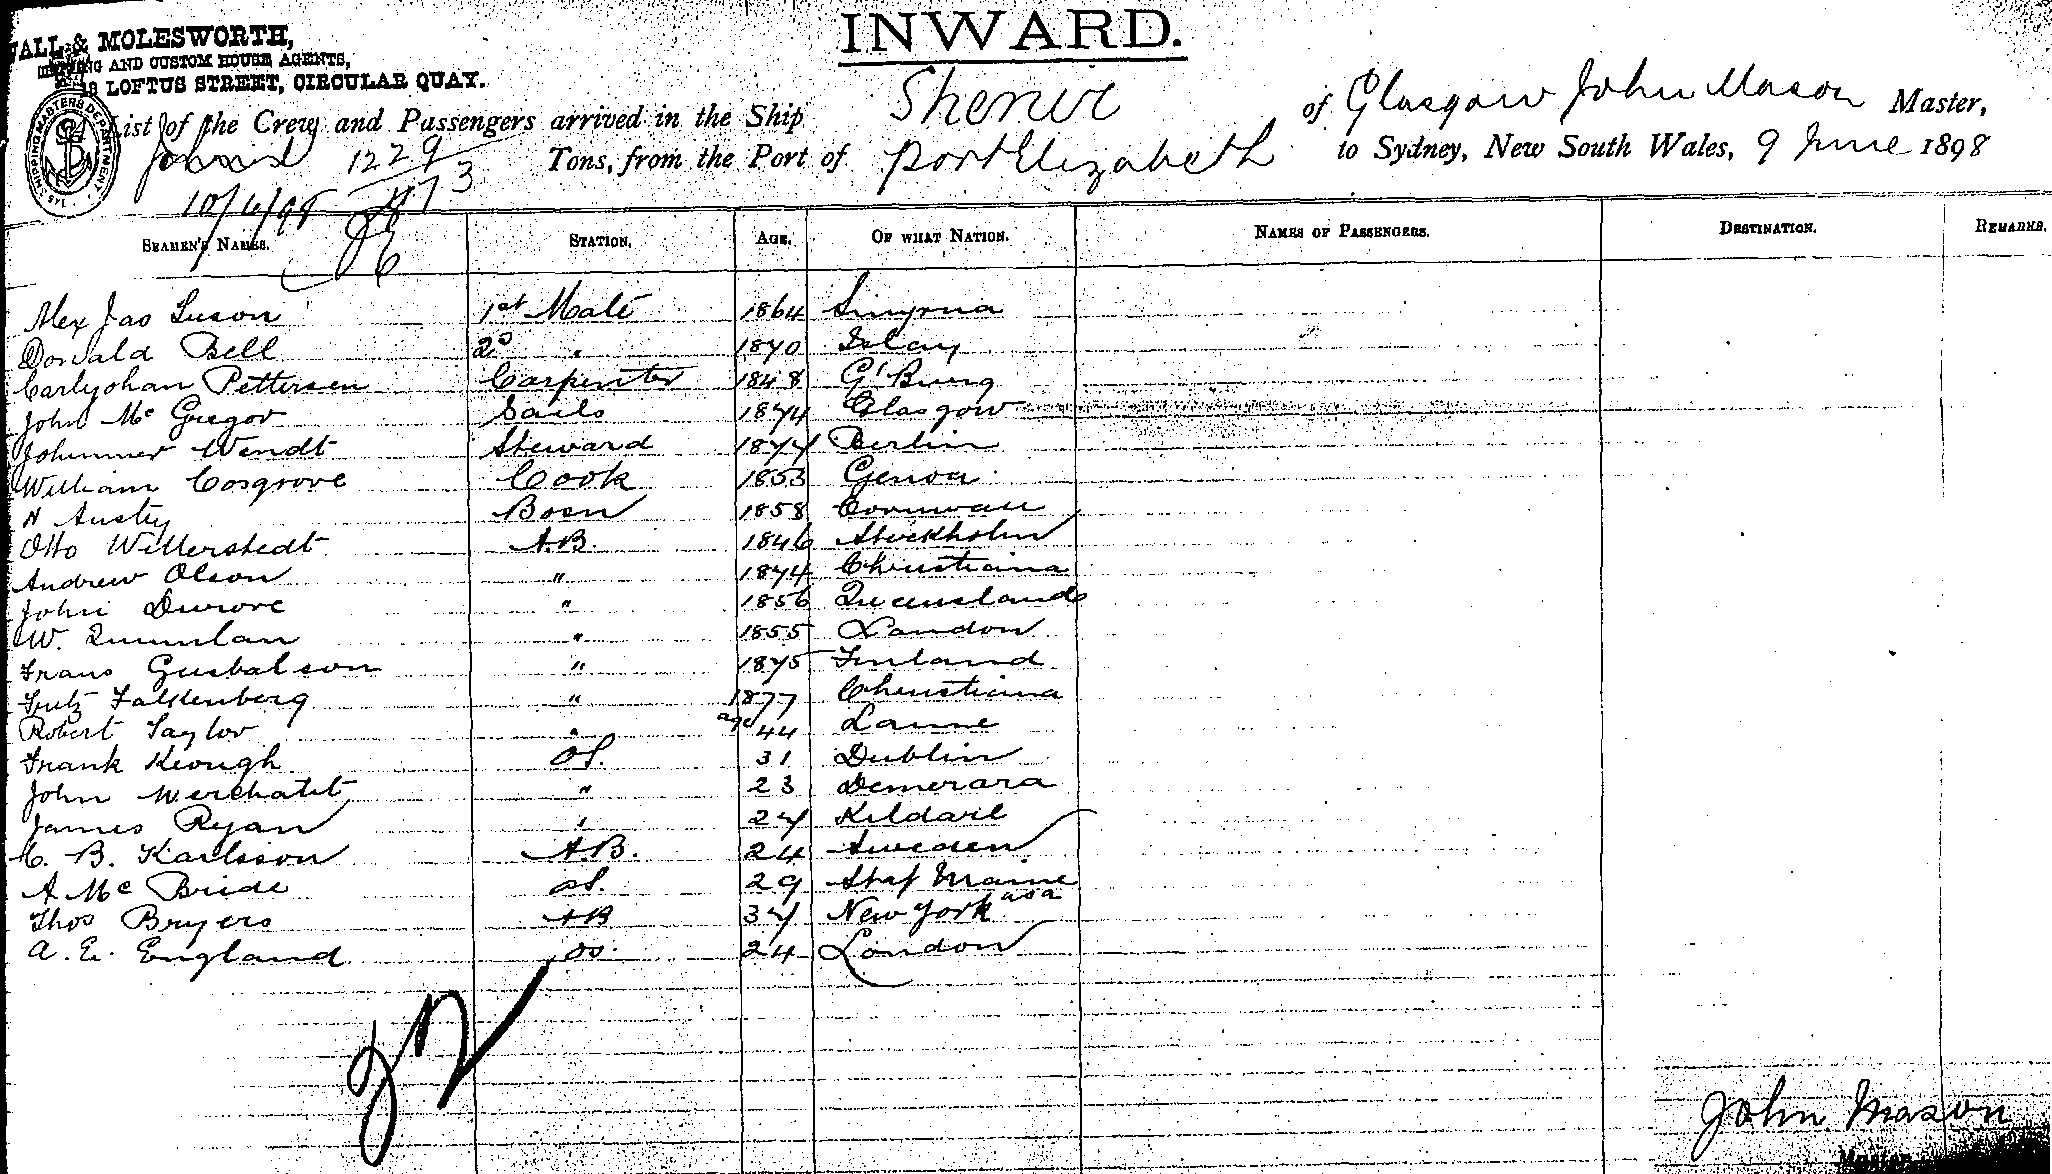 WALL & MOLESWORTH,
SHIPPING AND CUSTOM HOUSE AGENTS,
LOFTUS STREET, CIRCULAR QUAY.
INWARD.
SHIPPING MASTERS DEPARTMENT
List of the Crew and Passengers arrived in the Ship of Glasgow John Mason Master,
1229 Tons, from the Port of Port Elizabeth to Sydney, New South Wales, 9 June 1898
10/6/98
SEAMEN'S NAMES. STATION. AGE. OF WHAT NATION. NAMES OF PASSENGERS. DESTINATION. REMARKS.
Alex Jas 1st Mate 1864 Smyrna
Donald Bell 2d " 1870 Islay
Carljohan Pettersen Carpenter 1848 G'Burg
John McGregor Sails 1874 Glasgow
Wendt Steward 1874 Berlin
William Cosgrove Cook 1853 Genoa
Bosn 1858 Cornwall
Otto Witterstedt A.B. 1846 Stockholm
Andrew Olson " 1874 Christiana
John " 1856
W. Quinnlan " 1855 London
Frans " 1875 Finland
Fritz Falkenberg " 1877 Christiana
Robert Taylor " age 44 Larne
Frank Keough OS. 31 Dublin
John " 23 Demerara
James Ryan " 24 Kildare
C. B. Karlsson A.B. 24 Sweden
A McBride OS. 29
Thos Bryers AB 34 New York USA
A. E. England OS. 24 London
John Mason